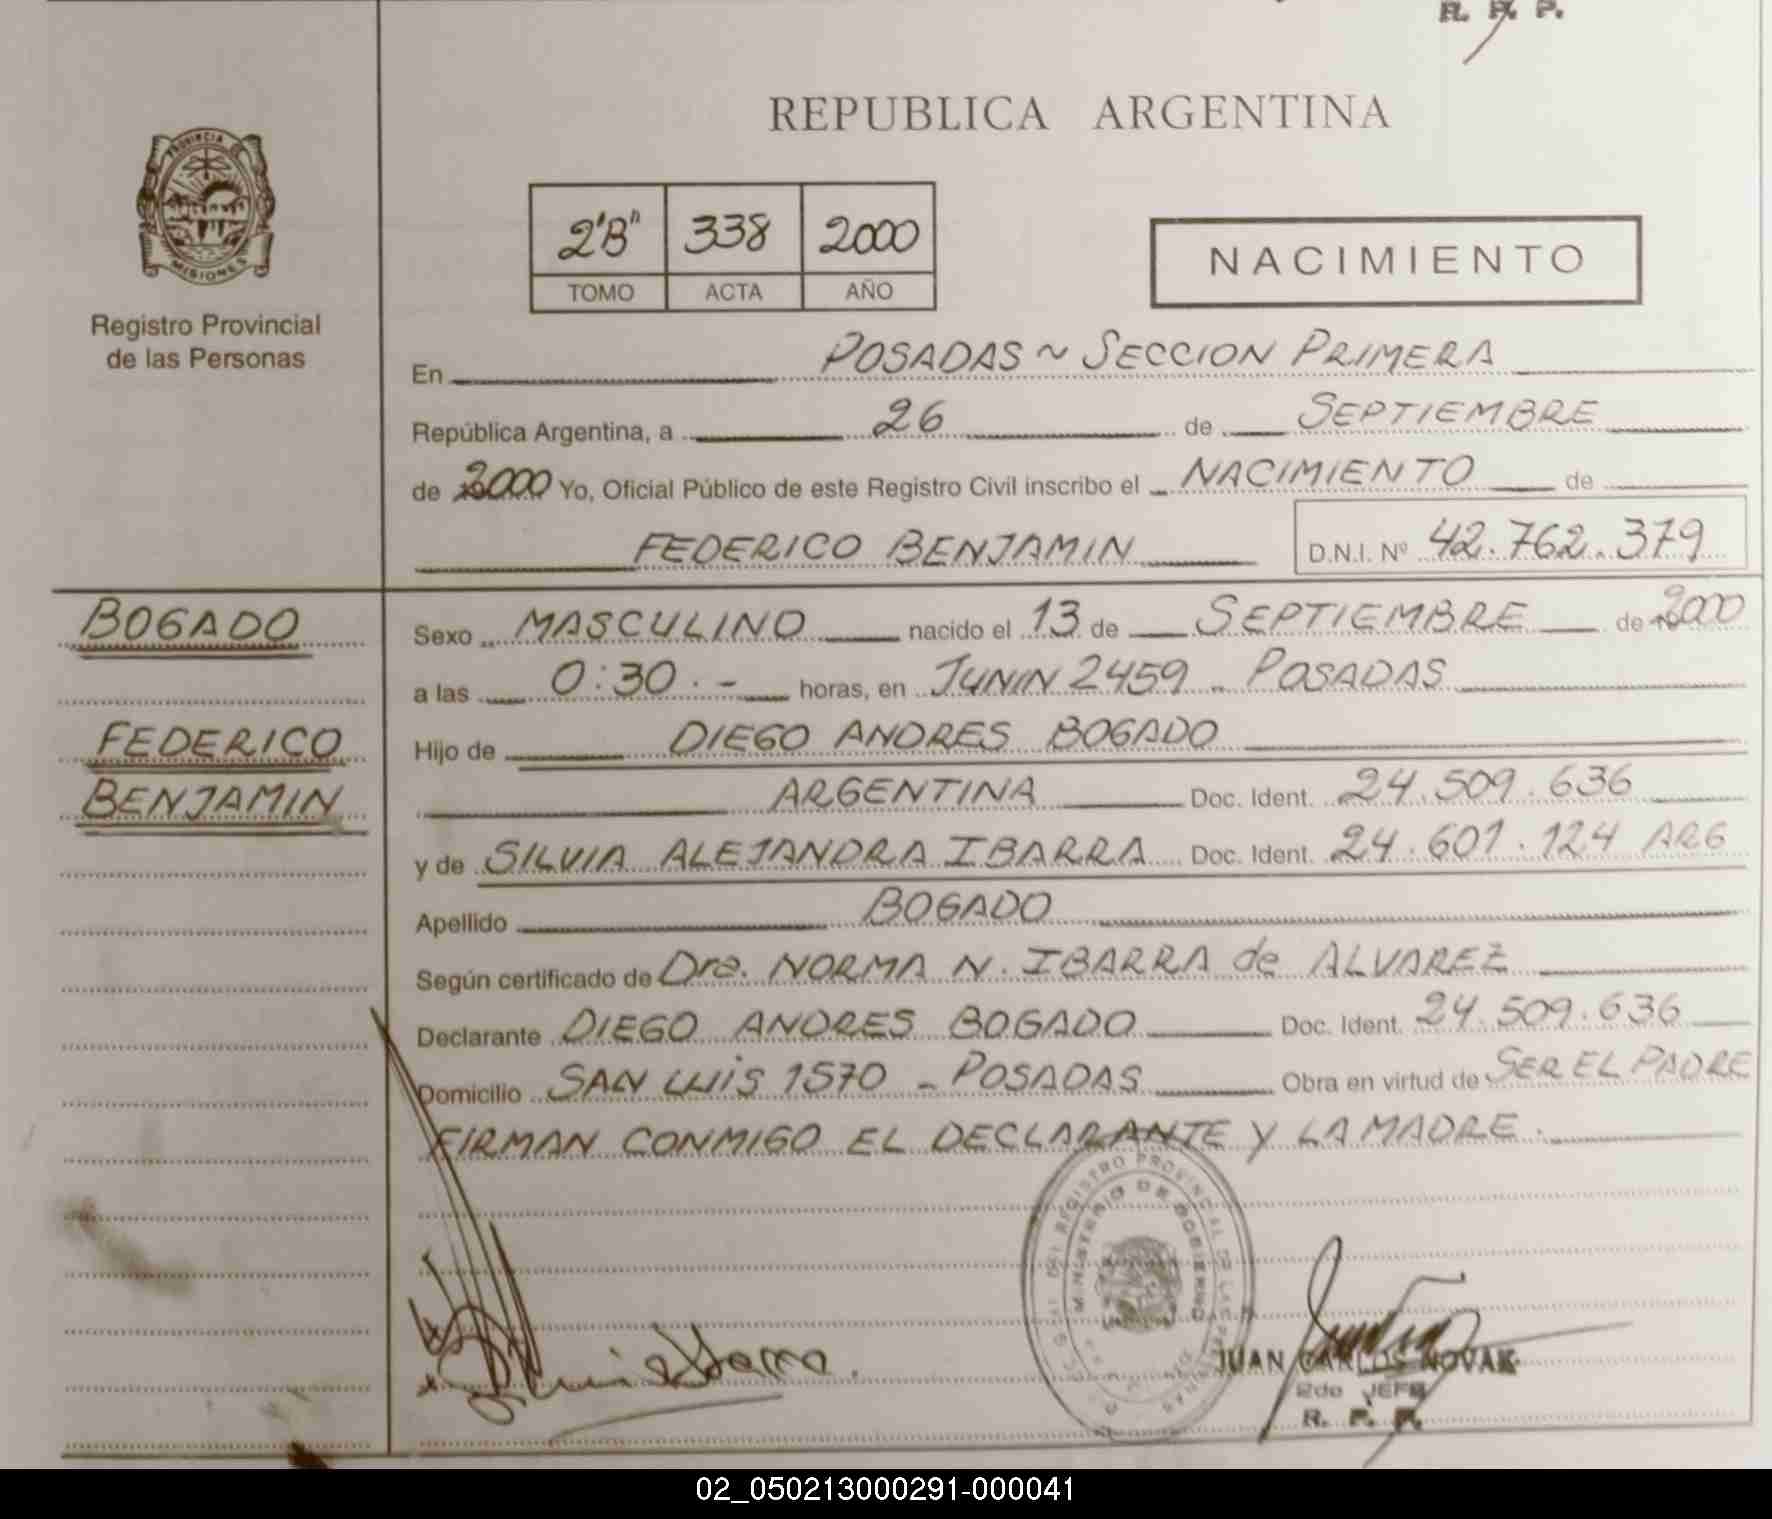 R. P. P.
REPUBLICA ARGENTINA
PROVINCIA DE
MISIONES
Registro Provincial
de las Personas
2"B" 338 2000
TOMO ACTA AÑO
NACIMIENTO
En POSADAS ~ SECCION PRIMERA
República Argentina, a 26 de SEPTIEMBRE
de 2000 Yo, Oficial Público de este Registro Civil inscribo el NACIMIENTO de
FEDERICO BENJAMIN D.N.I. Nº 42.762.379
BOGADO
FEDERICO
BENJAMIN
Sexo MASCULINO nacido el 13 de SEPTIEMBRE de 2000
a las 0:30.- horas, en JUNIN 2459 - POSADAS
Hijo de DIEGO ANDRES BOGADO
ARGENTINA Doc. Ident. 24.509.636
y de SILVIA ALEJANDRA IBARRA Doc. Ident. 24.601.124 ARG
Apellido BOGADO
Según certificado de Dra. NORMA N. IBARRA de ALVAREZ
Declarante DIEGO ANDRES BOGADO Doc. Ident. 24.509.636
Domicilio SAN LUIS 1570 - POSADAS Obra en virtud de SER EL PADRE
FIRMAN CONMIGO EL DECLARANTE Y LA MADRE.
REGISTRO PROVINCIAL DE LAS PERSONAS
MINISTERIO DE GOBIERNO
JUAN CARLOS NOVAK
2do JEFE
R. P. P.
02_050213000291-000041